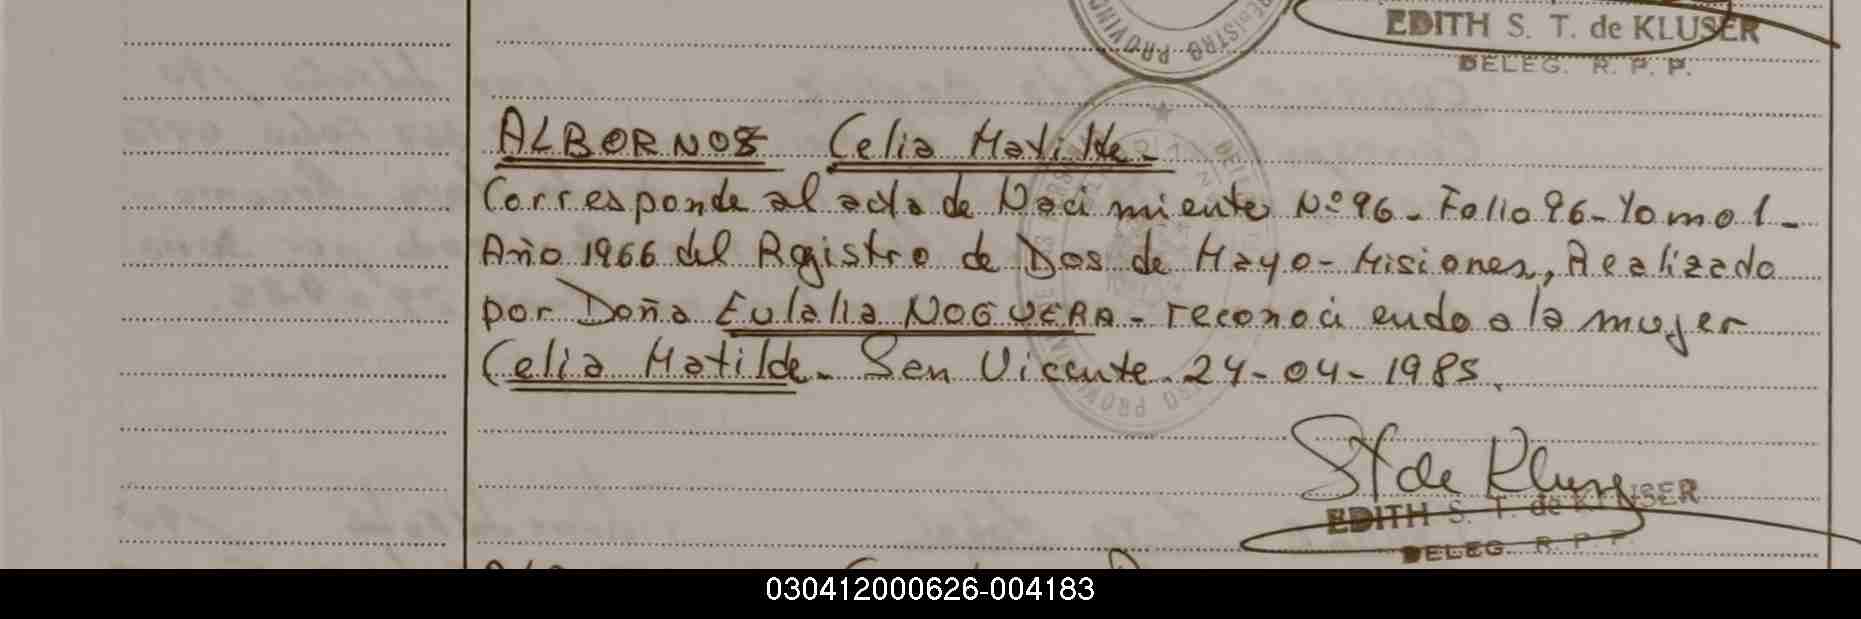 EDITH S. T. de KLUSER
DELEG. R. P. P.
REGISTRO PROVINC
ALBORNOZ Celia Matilde.-
Corresponde al acta de Nacimiento Nº 96 - Folio 96 - Tomo 1 -
Año 1966 del Registro de Dos de Mayo - Misiones, Realizado
por Doña Eulalia NOGUERA - reconociendo a la mujer
Celia Matilde. San Vicente 24-04-1985.
St de Kluser
EDITH S. T. de KLUSER
DELEG. R. P. P.
030412000626-004183